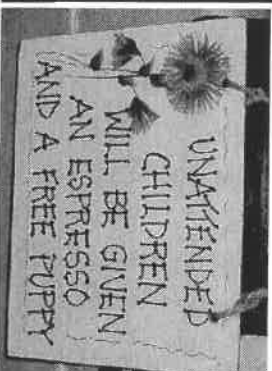 UNATTENDED
CHILDREN
WILL BE GIVEN
AN ESPRESSO
AND A FREE PUPPY